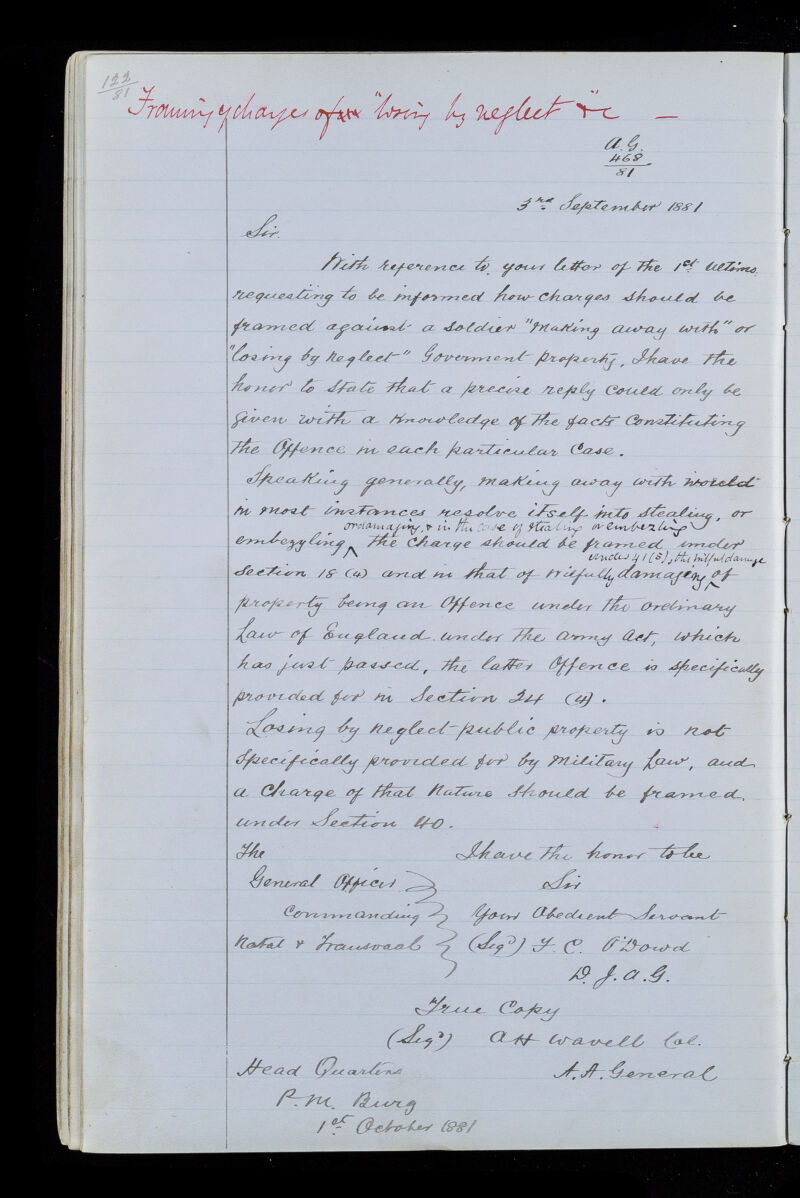 122
81
Framing of charges of "losing by neglect" &c —
A.G.
468
81
3rd September 1881
Sir.
With reference to your letter of the 1st Ultimo
requesting to be informed how charges should be
framed against a soldier "making away with" or
"losing by neglect" Goverment property, I have the
honor to state that a precise reply could only be
given with a knowledge of the facts Constituting
the Offence in each particular Case.
Speaking generally, making away with would
in most instances resolve itself into stealing, or
or damaging, & in the case of stealing or embezling
embezzling the charge should be framed under
under 41 (5), the wilful damage
Section 18 (4) and in that of wilfully damaging of
property being an Offence under the ordinary
Law of England. under the Army Act, which
has just passed, the latter Offence is specifically
provided for in Section 24 (4).
Losing by neglect public property is not
Specifically provided for by Military Law, and
a Charge of that Nature should be framed.
under Section 40.
The
I have the honor to be
General Officer
Sir
Commanding
Your Obedient Servant
Natal & Transvaal
(Sigd) F. C. O'Dowd
D. J. A. G.
True Copy
(Sigd) A H Wavell Col.
Head Quarters
A. A. General
P. M. Burg
1st October 1881